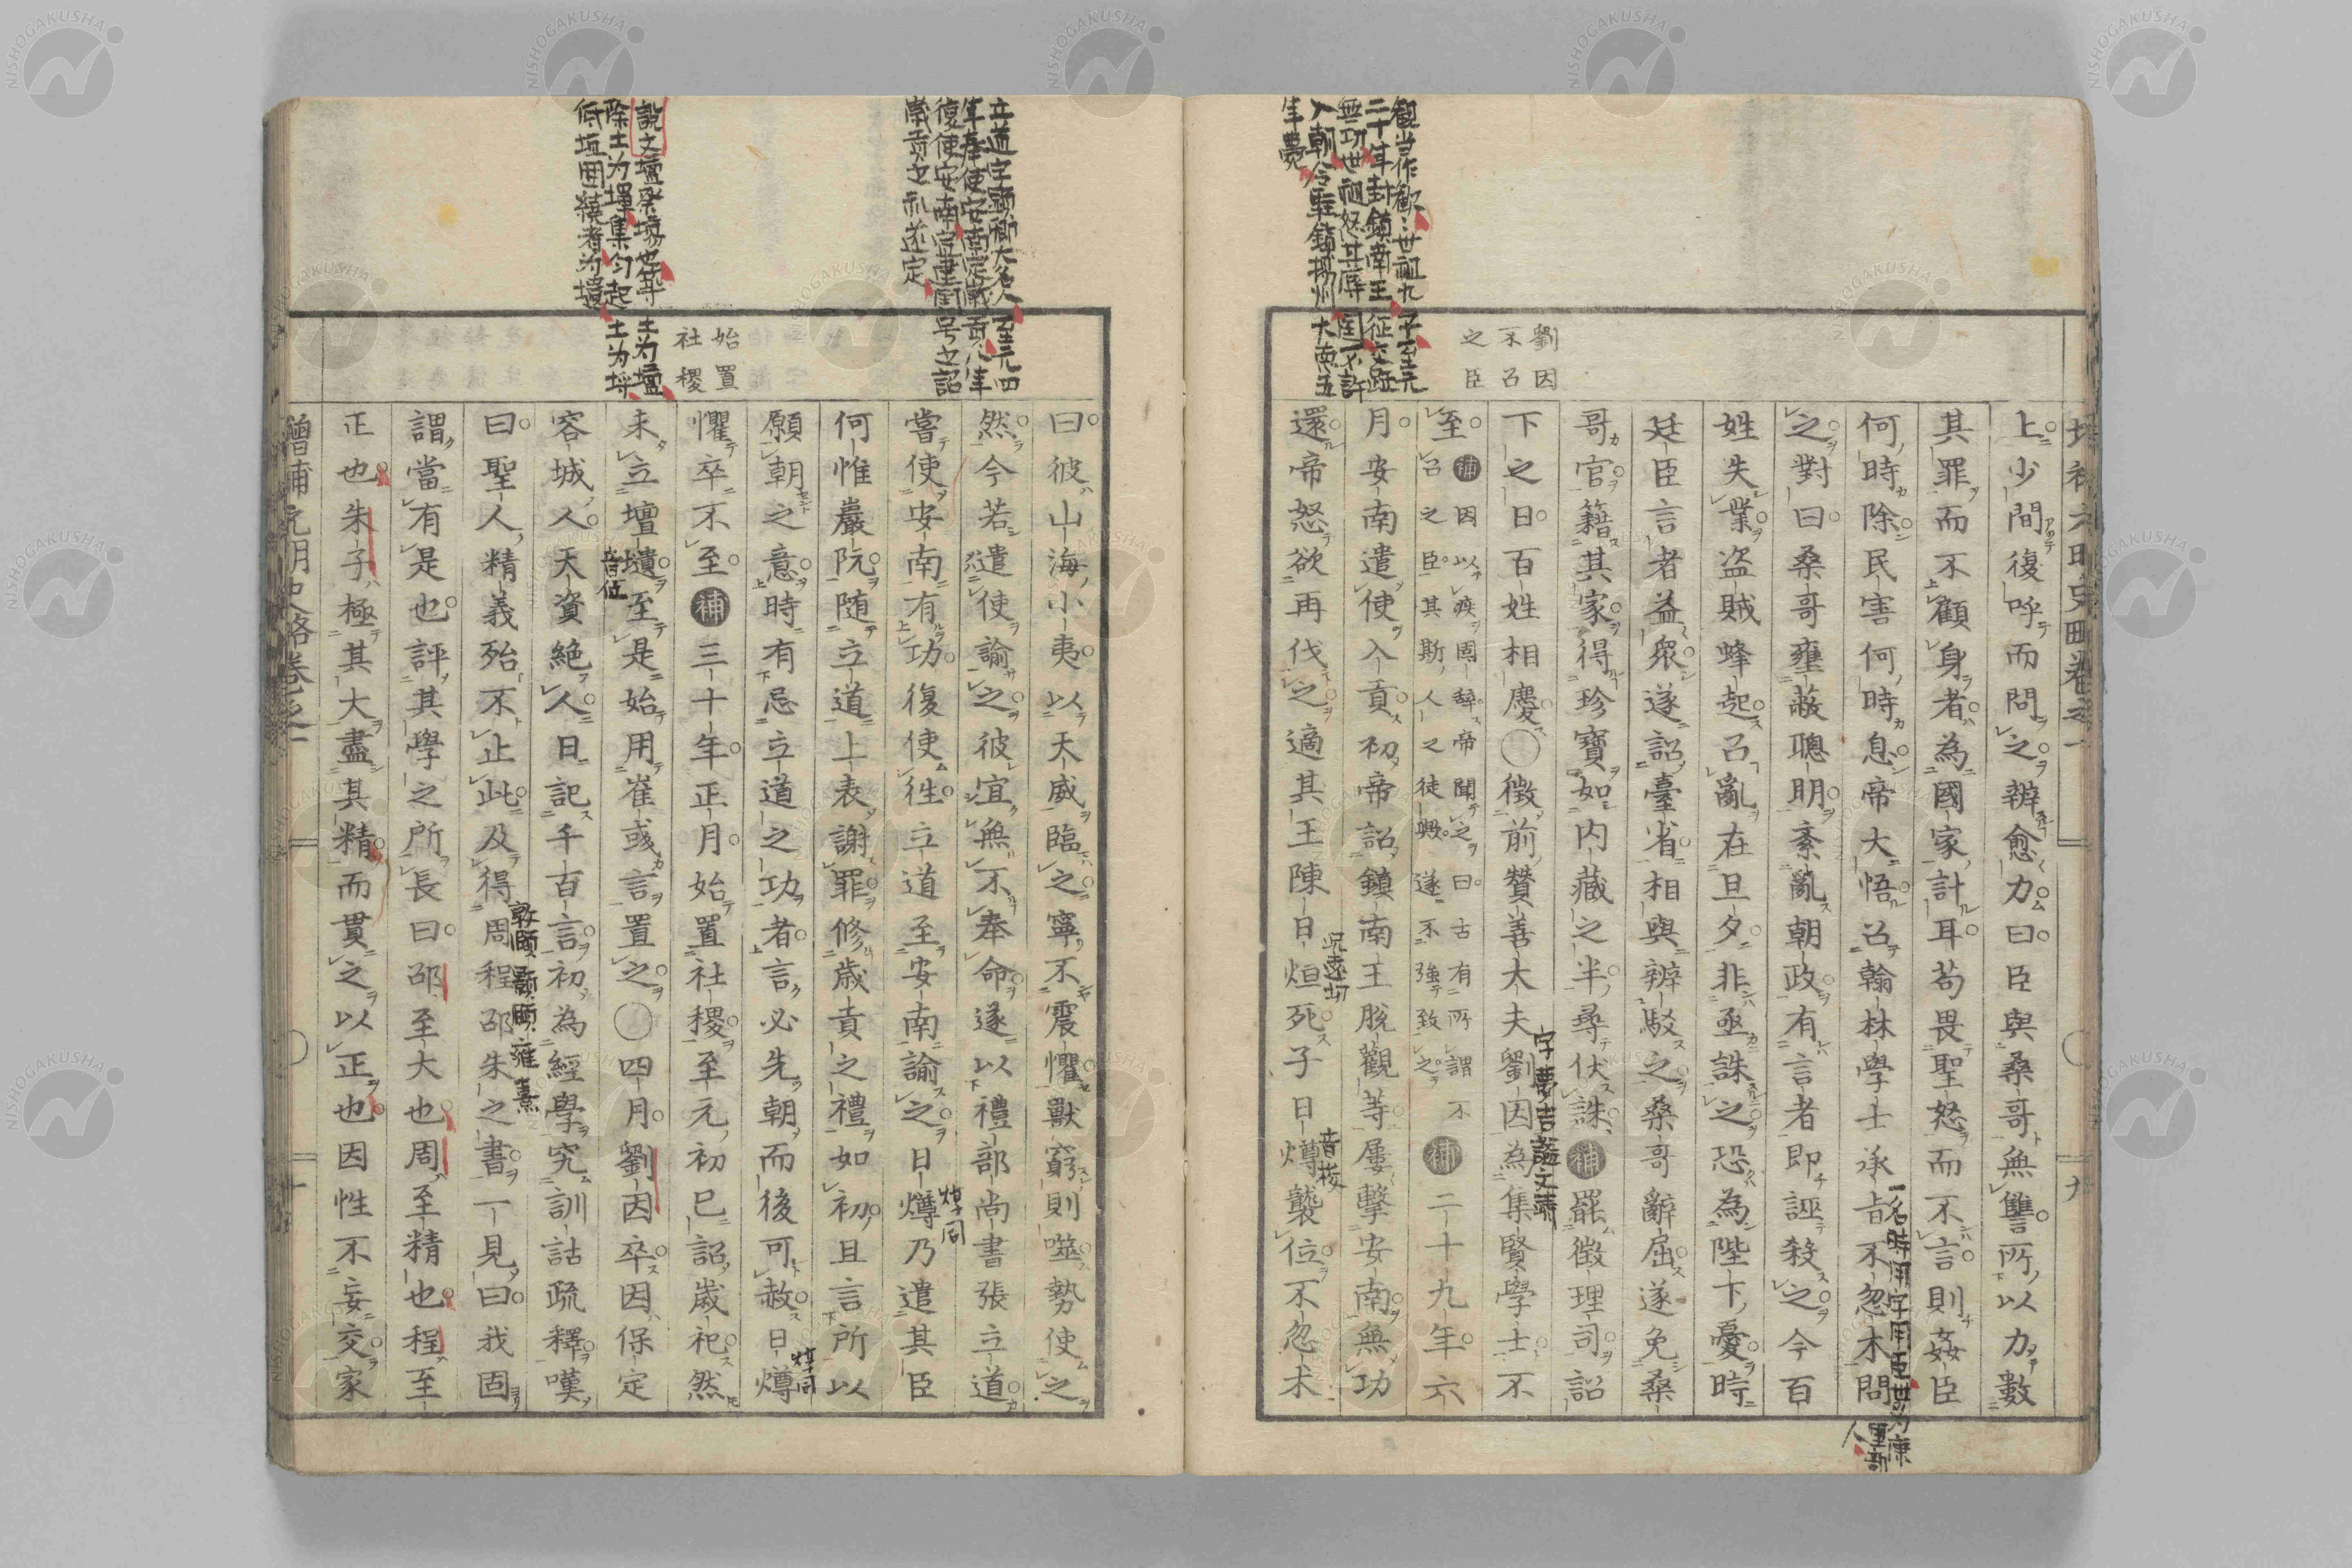 上少間復呼而問之辨愈力曰臣與桑哥無讐所以力數
其罪而不顧身者為國家計耳苟畏聖怒而不言則姦臣
何時除民害何時息帝大悟召翰林學士承旨不忽木問
之對曰桑哥壅蔽聰明紊亂朝政有言者即誣殺之今百
姓失業盜賊蜂起召亂在旦夕非亟誅之恐為陛下憂時
廷臣言者益衆遂詔臺省相與辨駁之桑哥辭屈遂免桑
哥官籍其家得珍寶如內藏之半尋伏誅補罷徵理司詔
下之日百姓相慶〇徵前贊善大夫劉因為集賢學士不
至補因以疾固辭帝聞之曰古有所謂不
召之臣其斯人之徒歟遂不強致之補二十九年六
月安南遣使入貢初帝詔鎮南王脫觀等屢擊安南無功
還帝怒欲再伐之適其王陳日烜死子日燇襲位不忽木
劉因
不召
之臣
觀当作歡世祖九子至元
二十年封鎮南王征交趾
無功世祖怒其辱国不許
入朝令駐鎮揚州大南五
年薨
一名時用字用臣世為康
里部人
字夢吉謚文靖
況遠切
音梭
曰彼山海小夷以天威臨之寧不震懼獸窮則噬勢使之
然今若遣使諭之彼宜無不奉命遂以禮部尚書張立道
嘗使安南有功復使往立道至安南諭之日燇乃遣其臣
何惟巖阮随立道上表謝罪修歲貢之禮如初且言所以
願朝之意時有忌立道之功者言必先朝而後可赦日燇
懼卒不至補三十年正月始置社稷至元初已詔歲祀然
未立壇壝至是始用崔彧言置之〇四月劉因卒因保定
容城人天資絶人日記千百言初為經學究訓詁疏釋嘆
曰聖人精義殆不止此及得周程邵朱之書一見曰我固
謂當有是也評其學之所長曰邵至大也周至精也程至
正也朱子極其大盡其精而貫之以正也因性不妄交家
增補元明史略卷之一
始置
社稷
立道字顯卿大名人至元四
年奉使安南定歲貢八年
復使安南宣建国号之詔
歲貢之礼遂定
説文壇祭場也築土为壇
除土为墠集匀起土为埒
低垣囲繞者为壝
音位
敦頤顥頤雍熹
焞同
焞同